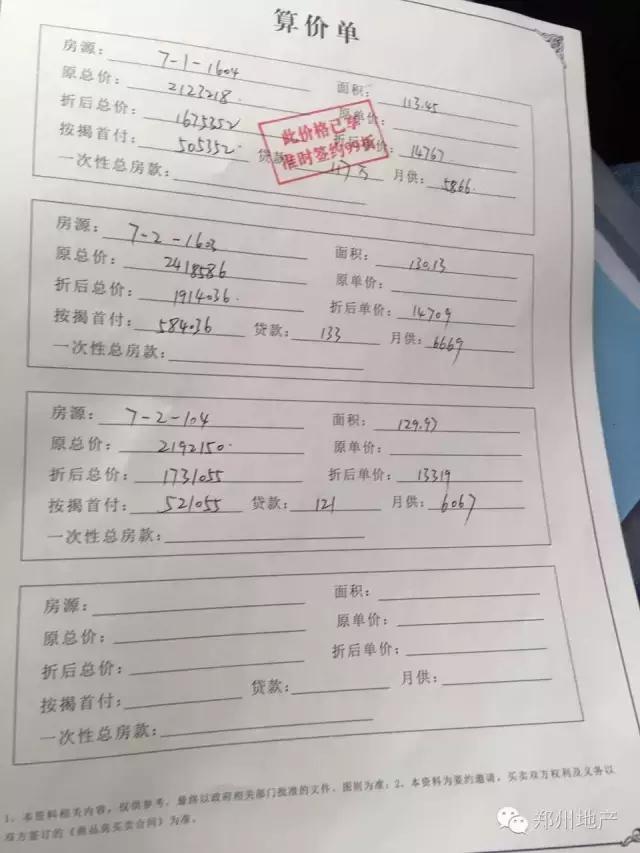 算价单
房源: 7-1-1604 面积: 113.45
原总价: 2123218. 原单价:
折后总价: 1675352 折后单价: 14767
按揭首付: 505352. 贷款: 117万 月供: 5866.
一次性总房款:
此价格已享
准时签约99折
房源: 7-2-1603 面积: 130.13
原总价: 2418586 原单价:
折后总价: 1914036. 折后单价: 14709
按揭首付: 584036 贷款: 133 月供: 6669
一次性总房款:
房源: 7-2-104 面积: 129.97
原总价: 2192150. 原单价:
折后总价: 1731055 折后单价: 13319
按揭首付: 521055 贷款: 121 月供: 6067
一次性总房款:
房源: 面积:
原总价: 原单价:
折后总价: 折后单价:
按揭首付: 贷款: 月供:
一次性总房款:
1、本资料相关内容,仅供参考,最终以政府相关部门批准的文件、图则为准;2、本资料为要约邀请,买卖双方权利及义务以
双方签订的《商品房买卖合同》为准。
郑州地产